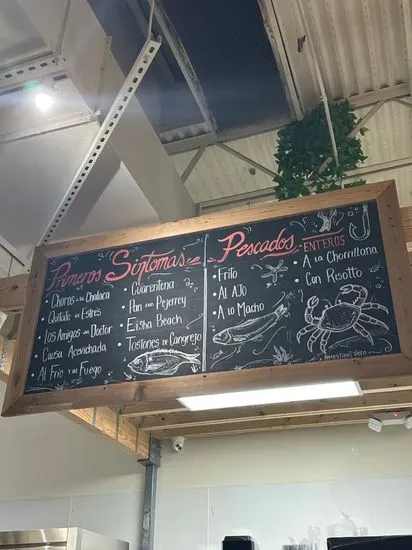 Primeros Síntomas
• Choros a la Chalaca
• Quítate el Estres
• Los Amigos del Doctor
• Causa Acevichada
• Al Frío y al Fuego
• Cuarentena
• Pan con Pejerrey
• Eisha Beach
• Tostones de Cangrejo
Pescados - ENTEROS -
• Frito
• Al Ajo
• A lo Macho
• A la Chorrillana
• Con Risotto